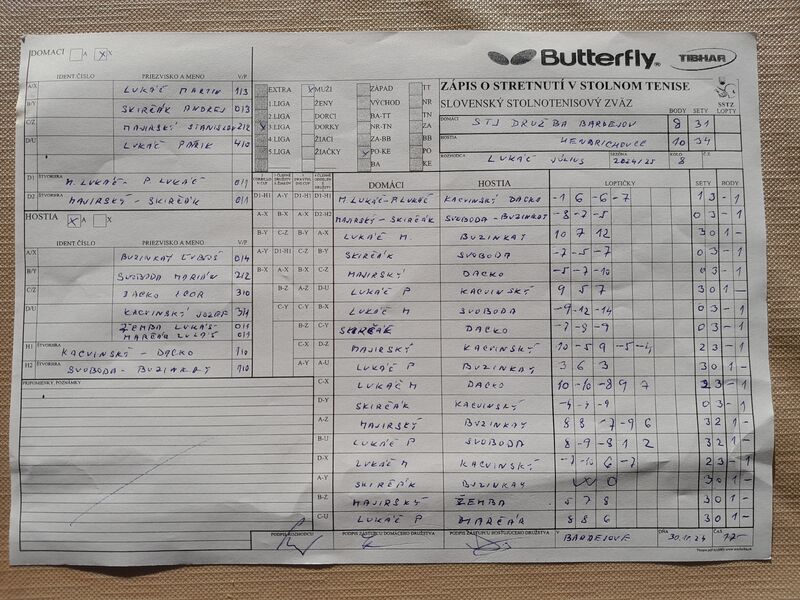 DOMACI A X X
Butterfly. TIBHAR
IDENT.ČÍSLO PRIEZVISKO A MENO V/P
ZÁPIS O STRETNUTÍ V STOLNOM TENISE
SLOVENSKÝ STOLNOTENISOVÝ ZVÄZ
SSTZ
BODY SETY LOPTY
A/X LUKÁČ MARTIN 1/3
B/Y SKIRČÁK ANDREJ 0/3
C/Z MAJIRSKÝ STANISLAV 2/2
D/U LUKÁČ 4/0
EXTRA X MUŽI ZÁPAD TT
1.LIGA ŽENY VÝCHOD NR
2.LIGA DORCI BA-TT TN
3.LIGA DORKY NR-TN ZA
4.LIGA ŽIACI ZA-BB BB
5.LIGA ŽIAČKY PO-KE PO
BA KE
DOMÁCI STJ DRUŽBA BARDEJOV 8 31
HOSTIA HENDRICHOVCE 10 34
ROZHODCA LUKÁČ JÚLIUS SEZÓNA 2024/25 KOLO 8 Č.
D1 ŠTVORHRA M. LUKÁČ - P LUKÁČ 0/1
D2 ŠTVORHRA MAJIRSKÝ - SKIRČÁK 0/1
HOSTIA X A X
IDENT.ČÍSLO PRIEZVISKO A MENO V/P
A/X BUZINKAY ĽUBOŠ 0/4
B/Y SVOBODA MARIÁN 2/2
C/Z DACKO IGOR 3/0
D/U KACVINSKÝ JOZEF 3/1
ŽEMBA LUKÁŠ 0/1
MARČÁR 0/1
H1 ŠTVORHRA KACVINSKÝ - DACKO 1/0
H2 ŠTVORHRA SVOBODA - BUZINKAY 1/0
PRIPOMIENKY, POZNÁMKY
DOMÁCI HOSTIA LOPTIČKY SETY BODY
D1-H1 M. LUKÁČ - P LUKÁČ KACVINSKÝ DACKO -1 6 -6 -7 1 3 - 1
D2-H2 MAJIRSKÝ - SKIRČÁK SVOBODA - BUZINKAY -8 -7 -5 0 3 - 1
LUKÁČ M. BUZINKAY 10 7 12 3 0 1 -
SKIRČÁK SVOBODA -7 -5 -7 0 3 - 1
MAJIRSKÝ DACKO -5 -7 -10 0 3 - 1
LUKÁČ P KACVINSKÝ 9 5 7 3 0 1 -
LUKÁČ M SVOBODA -9 -12 -14 0 3 - 1
B-Z C-Y SKIRČÁK DACKO -7 -8 -9 0 3 - 1
C-X D-Z MAJIRSKÝ KACVINSKÝ 10 -5 9 -5 -4 2 3 - 1
A-Y A-U LUKÁČ P BUZINKAY 3 6 3 3 0 1 -
C-X LUKÁČ M DACKO 10 -10 -8 9 7 2 3 - 1
D-Y SKIRČÁK KACVINSKÝ -4 -7 -9 0 3 - 1
A-Z MAJIRSKÝ BUZINKAY 8 8 -7 -9 6 3 2 1 -
B-U LUKÁČ P SVOBODA 8 -9 -8 1 2 3 2 1 -
D-X LUKÁČ M KACVINSKÝ -7 -10 6 -7 2 3 - 1
A-Y SKIRČÁK BUZINKAY W O 3 0 1 -
B-Z MAJIRSKÝ ŽEMBA 5 7 8 3 0 1 -
C-U LUKÁČ P MARČÁR 8 8 6 3 0 1 -
PODPIS ROZHODCU PODPIS ZÁSTUPCU DOMÁCEHO DRUŽSTVA PODPIS ZÁSTUPCU HOSŤUJÚCEHO DRUŽSTVA V BARDEJOVE DŇA 30.11.24 ČAS